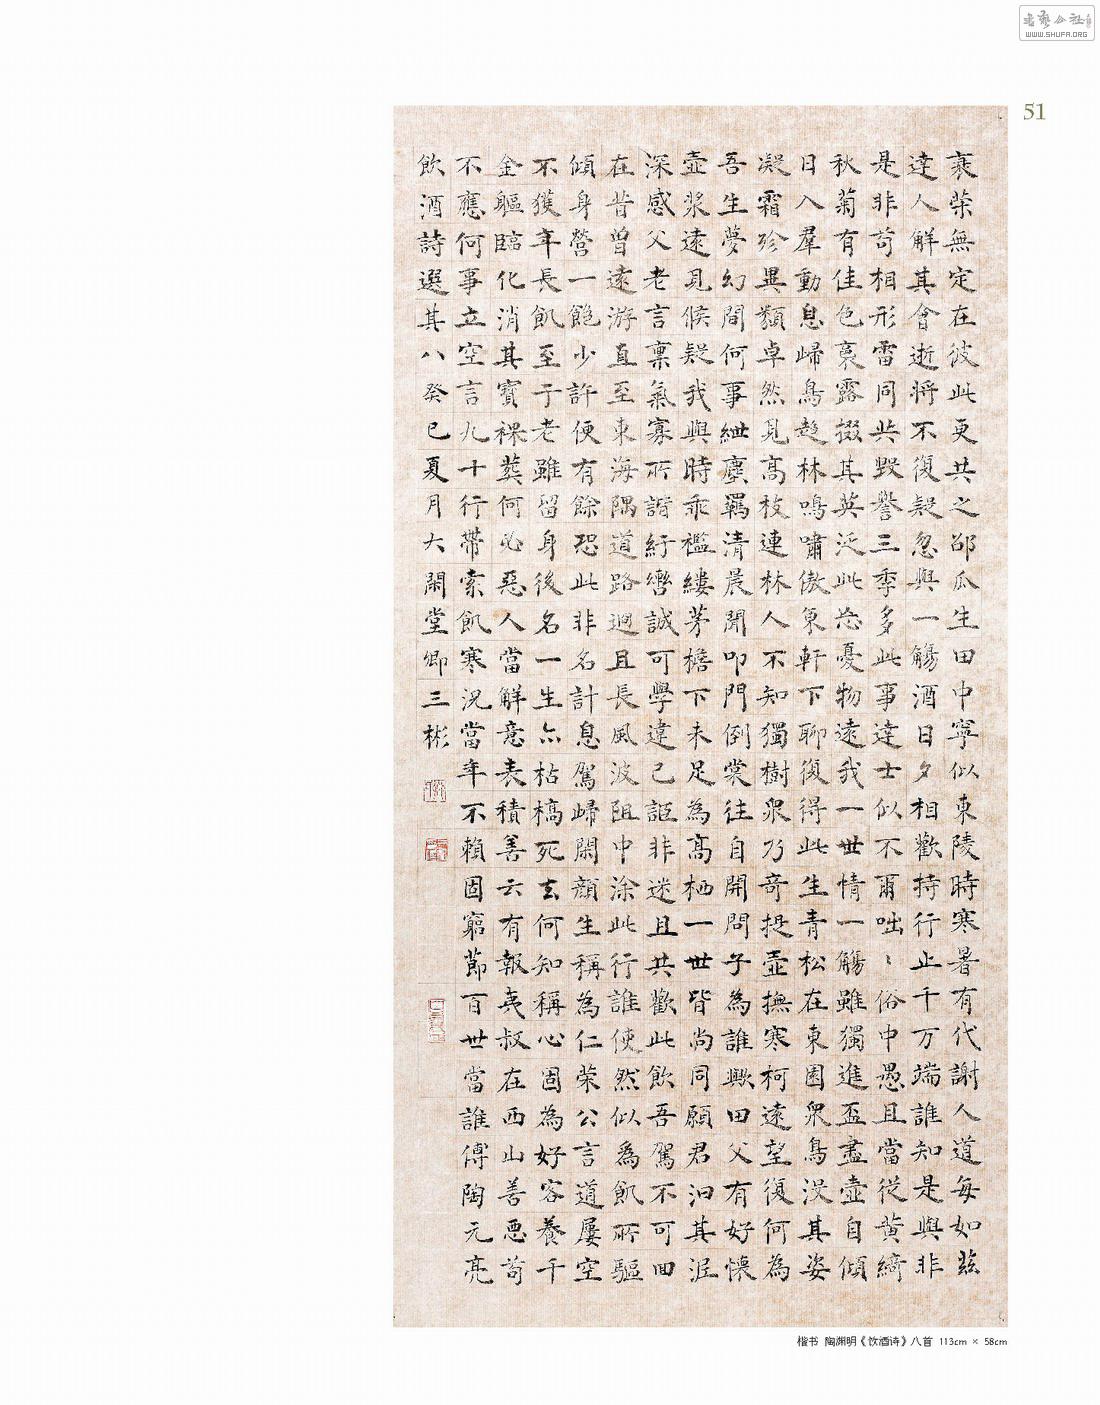 WWW.SHUFA.ORG
51
衰荣無定在彼此更共之邵瓜生田中寧似東陵時寒暑有代謝人道每如茲
達人解其會逝將不復疑忽與一觴酒日夕相歡持行止千万端誰知是與非
是非苟相形雷同共毀譽三季多此事達士似不爾咄〻俗中愚且當從黄綺
秋菊有佳色裛露掇其英泛此忘憂物遠我一世情一觴雖獨進盃盡壺自傾
日入羣動息歸鳥趨林鳴嘯傲東軒下聊復得此生青松在東園眾鳥没其姿
凝霜殄異類卓然見高枝連林人不知獨樹眾乃奇提壺撫寒柯遠望復何為
吾生夢幻間何事紲塵羈清晨聞叩門倒裳往自開問子為誰歟田父有好懷
壺漿遠見候疑我與時乖襤縷茅檐下未足為高栖一世皆尚同願君汩其泥
深感父老言稟氣寡所諧紆轡誠可學違己詎非迷且共歡此飲吾駕不可回
在昔曾遠游直至東海隅道路迥且長風波阻中涂此行誰使然似為飢所驅
傾身營一飽少許便有餘恐此非名計息駕歸閑顏生稱為仁荣公言道屢空
不獲年長飢至于老雖留身後名一生亦枯槁死去何知稱心固為好客養千
金軀臨化消其寶裸葬何必惡人當解意表積善云有報夷叔在西山善惡苟
不應何事立空言九十行帶索飢寒況當年不賴固窮節百世當誰傳陶元亮
飲酒詩選其八癸巳夏月大閑堂卿三彬
楷书 陶渊明《饮酒诗》八首 113cm × 58cm